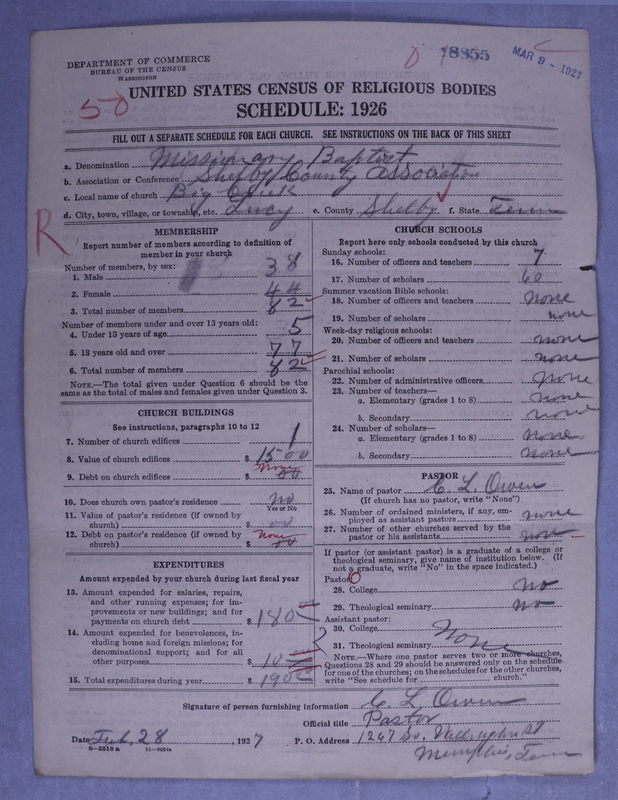 DEPARTMENT OF COMMERCE
BUREAU OF THE CENSUS
WASHINGTON
18355
MAR 9 - 1927
50
UNITED STATES CENSUS OF RELIGIOUS BODIES
SCHEDULE: 1926
FILL OUT A SEPARATE SCHEDULE FOR EACH CHURCH. SEE INSTRUCTIONS ON THE BACK OF THIS SHEET
a. Denomination Missionary Baptist
b. Association or Conference Shelby County Association
c. Local name of church Big Creek
d. City, town, village, or township, etc. Lucy e. County Shelby f. State Tenn
R
MEMBERSHIP
Report number of members according to definition of
member in your church
Number of members, by sex:
1. Male 38
2. Female 44
3. Total number of members 82
Number of members under and over 13 years old:
4. Under 13 years of age 5
5. 13 years old and over 77
6. Total number of members 82
NOTE.—The total given under Question 6 should be
same as the total of males and females given under Question 3.
CHURCH BUILDINGS
See instructions, paragraphs 10 to 12
7. Number of church edifices 1
8. Value of church edifices $ 1500
9. Debt on church edifices $ None 00
10. Does church own pastor's residence No
Yes or No
11. Value of pastor's residence (if owned by
church) $ 00
12. Debt on pastor's residence (if owned by
church) $ None 00
EXPENDITURES
Amount expended by your church during last fiscal year
13. Amount expended for salaries, repairs,
and other running expenses; for im-
provements or new buildings; and for
payments on church debt $ 180
14. Amount expended for benevolences, in-
cluding home and foreign missions; for
denominational support; and for all
other purposes $ 10
15. Total expenditures during year $ 190
CHURCH SCHOOLS
Report here only schools conducted by this church
Sunday schools:
16. Number of officers and teachers 7
17. Number of scholars 60
Summer vacation Bible schools:
18. Number of officers and teachers none
19. Number of scholars none
Week-day religious schools:
20. Number of officers and teachers none
21. Number of scholars none
Parochial schools:
22. Number of administrative officers None
23. Number of teachers—
a. Elementary (grades 1 to 8) none
b. Secondary none
24. Number of scholars—
a. Elementary (grades 1 to 8) none
b. Secondary none
PASTOR
25. Name of pastor C. L. Owen
(If church has no pastor, write "None")
26. Number of ordained ministers, if any, em-
ployed as assistant pastors none
27. Number of other churches served by the
pastor or his assistants none
If pastor (or assistant pastor) is a graduate of a college or
theological seminary, give name of institution below. (If
not a graduate, write "No" in the space indicated.)
Pastor:
28. College No
29. Theological seminary No
Assistant pastor:
30. College
31. Theological seminary None
NOTE.—Where one pastor serves two or more churches,
Questions 28 and 29 should be answered only on the schedule
for one of the churches; on the schedules for the other churches,
write "See schedule for church."
Signature of person furnishing information C. L. Owen
Official title Pastor
Date Feb, 28, 1927 P. O. Address 1247 So.
Memphis, Tenn
6-5518 a